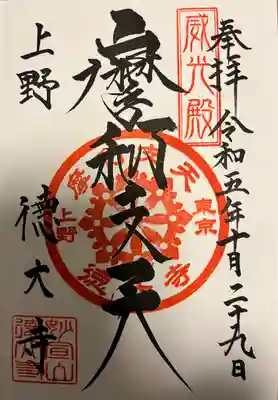 奉拝 令和五年十月二十九日
威光殿
摩利支天
上野 徳大寺
東京
上野
妙宣山